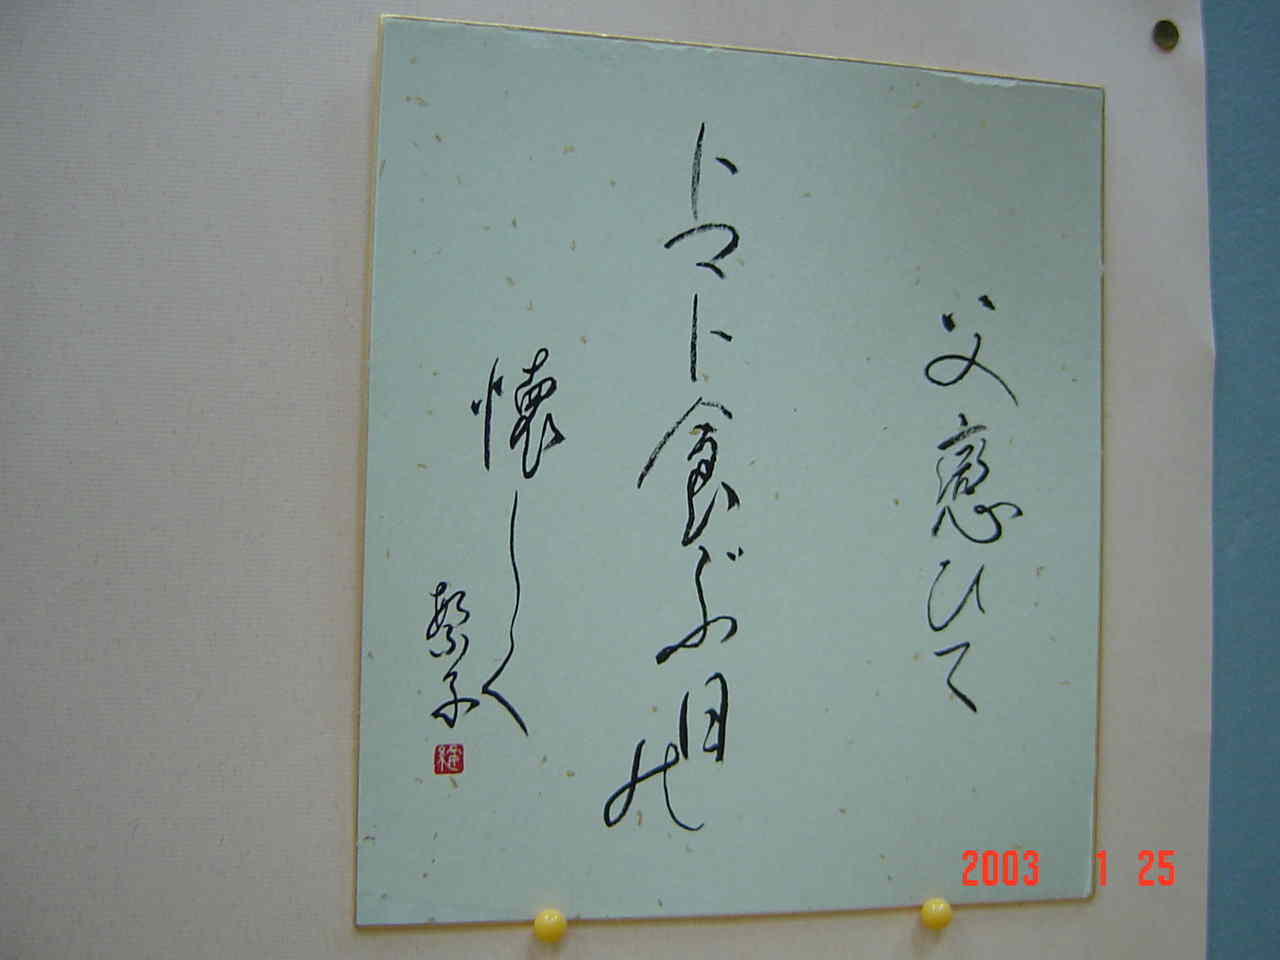 父戀ひて
トマト食ぶ日の
懐しく
2003 1 25